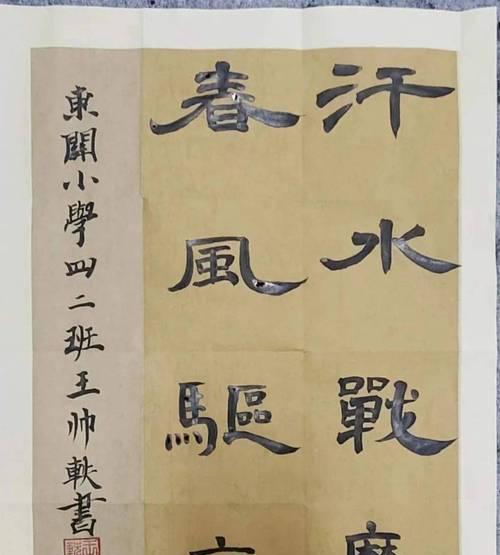 汗水戰
春風驅
東關小學四二班王帅軼書